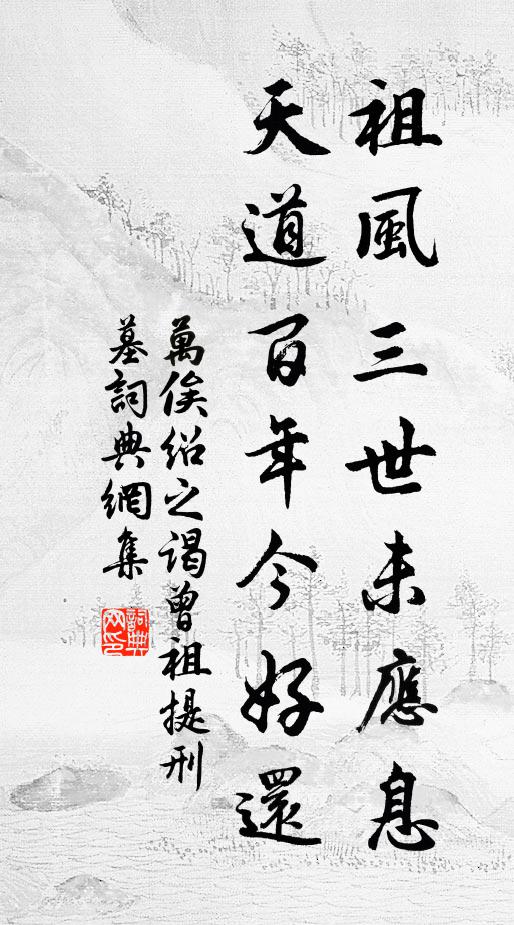 祖風三世未應息
天道百年今好還
萬俟紹之謁曾祖提刑
墓詞典網集
詞典网印